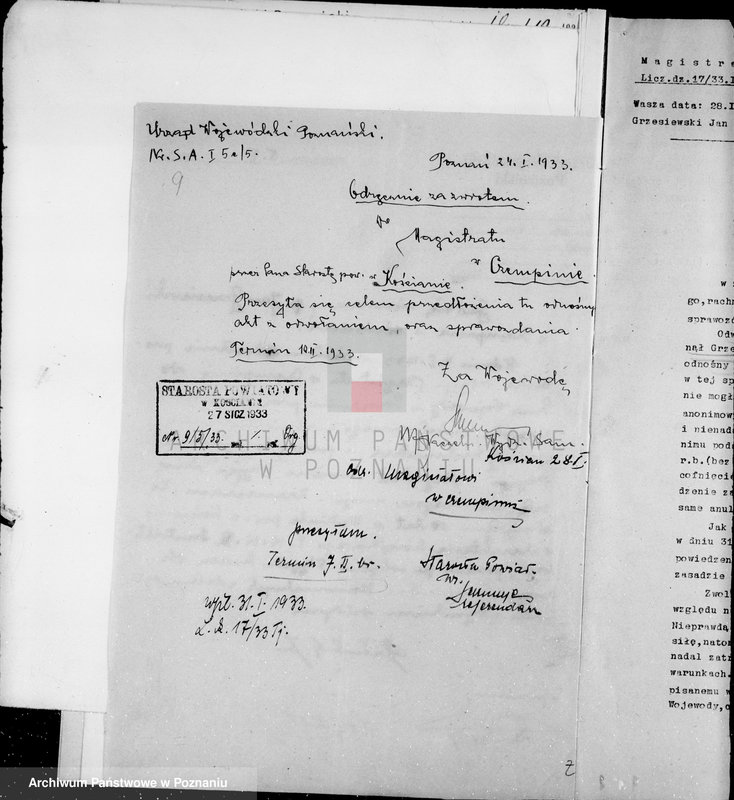 Urząd Wojewódzki Poznański.
Nr. S. A. I 5a/5.
9
Poznań 24. I. 1933.
Odręcznie za zwrotem.
Do
Magistratu
w Czempiniu.
przez Pana Starostę pow. w Kościanie.
Przesyła się celem przedłożenia tu odnośnych
akt z odwołaniem oraz sprawozdania.
Termin 10.II. 1933.
Za Wojewodę
Naczel. Wydz. Sam.
STAROSTA POWIATOWY
W KOŚCIANIE
27 SICZ 1933
Nr. 9/5/33. Org
Kościan 28.I.
Odr. Magistratowi
w Czempiniu
przesyłam.
Termin 7. II. br.
Starosta Powiat.
wz.
referendarz
wpł. 31. I. 1933.
L. dz. 17/33 Tj.
ARCHIWUM PAŃSTWOWE
W POZNANIU
Magistra
Licz.dz.17/33.I
Wasza data: 28.I
Grzesiewski Jan
w s
go,rach
sprawoz
Odw
nął Grze
odnośny
w tej sp
nie mogł
anonimow
i nienad
nimu pod
r.b.(bez
cofnięci
dzenie z
same anul
Jak
w dniu 31
powiedzen
zasadzie
Zwol
względu n
Nieprawdą
siłę,nato
nadal zatr
warunkach.
pisanemu w
Wojewody,c
Archiwum Państwowe w Poznaniu